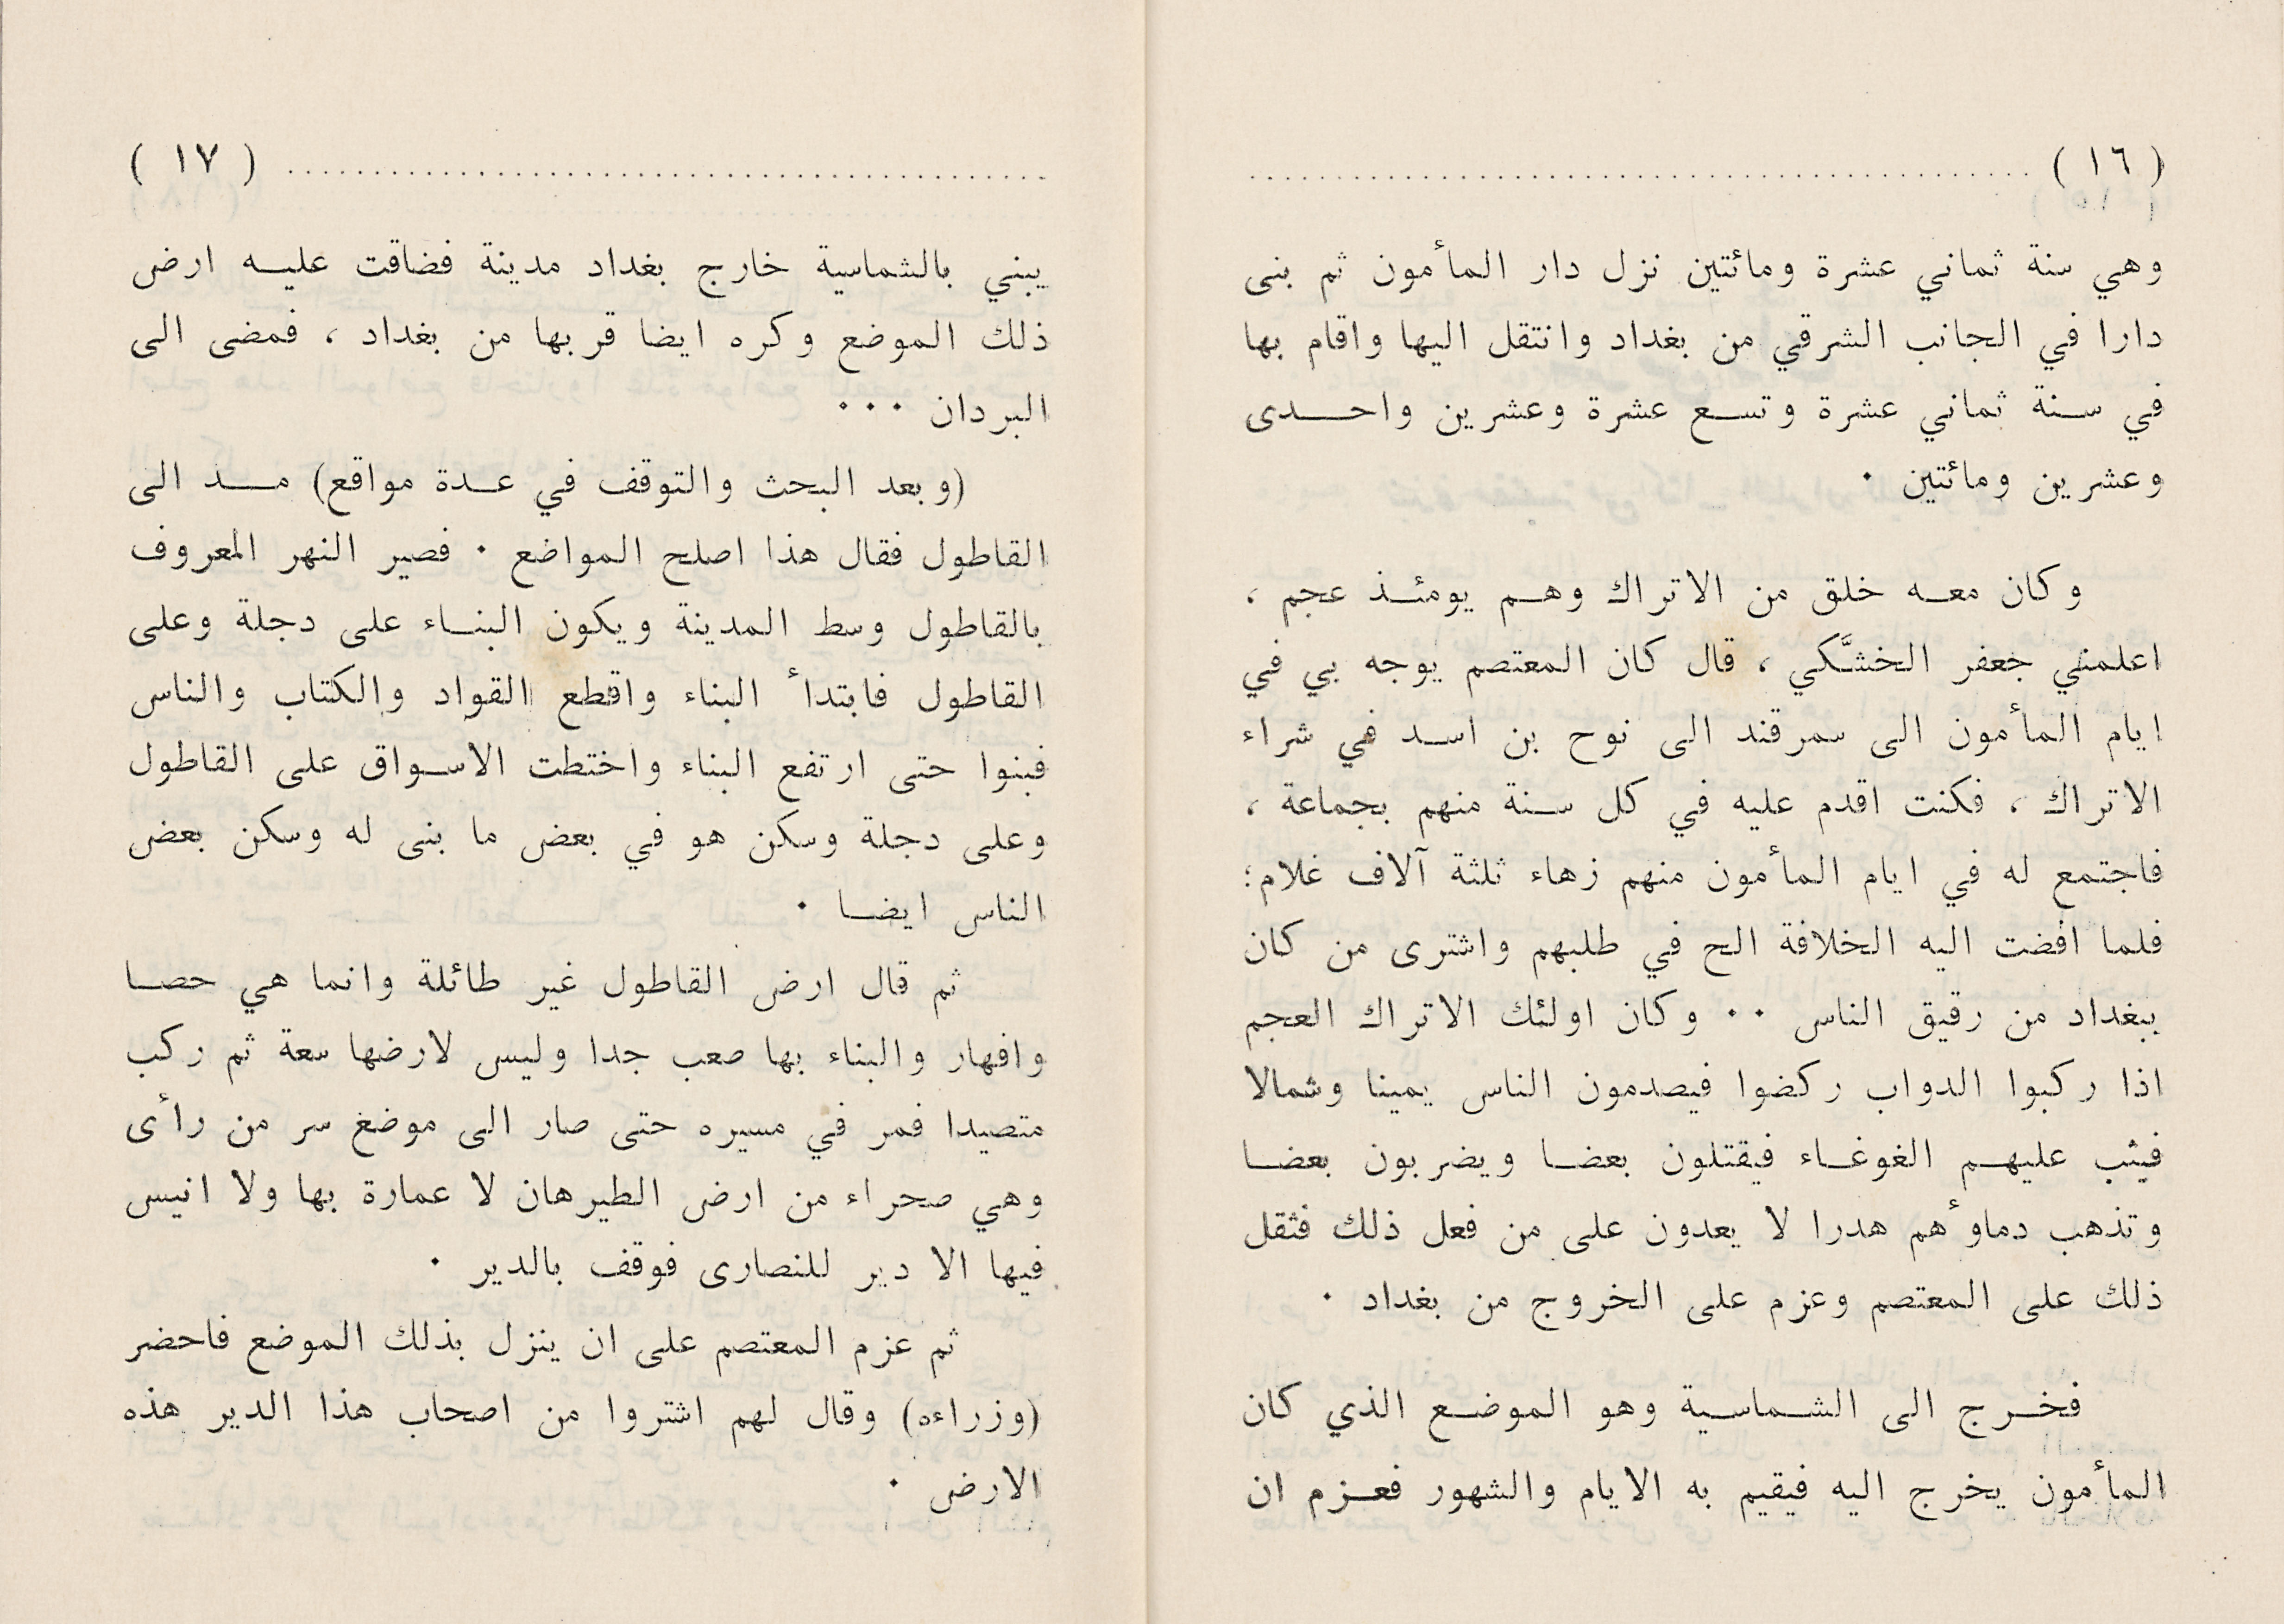 ( ١٦ )
وهي سنة ثماني عشرة ومائتين نزل دار المأمون ثم بنى
دارا في الجانب الشرقي من بغداد وانتقل اليها واقام بها
في سنة ثماني عشرة وتسع عشرة وعشرين واحدى
وعشرين ومائتين ٠
وكان معه خلق من الاتراك وهم يومئذ عجم ،
اعلمني جعفر الخشَّكي ، قال كان المعتصم يوجه بي في
ايام المأمون الى سمرقند الى نوح بن اسد في شراء
الاتراك ، فكنت اقدم عليه في كل سنة منهم بجماعة ،
فاجتمع له في ايام المأمون منهم زهاء ثلثة آلاف غلام؛
فلما افضت اليه الخلافة الح في طلبهم واشترى من كان
ببغداد من رقيق الناس ٠٠ وكان اولئك الاتراك العجم
اذا ركبوا الدواب ركضوا فيصدمون الناس يمينا وشمالا
فيثب عليهم الغوغاء فيقتلون بعضا ويضربون بعضا
وتذهب دماوٴهم هدرا لا يعدون على من فعل ذلك فثقل
ذلك على المعتصم وعزم على الخروج من بغداد ٠
فخرج الى الشماسية وهو الموضع الذي كان
المأمون يخرج اليه فيقيم به الايام والشهور فعزم ان
( ١٧ )
يبني بالشماسية خارج بغداد مدينة فضاقت عليه ارض
ذلك الموضع وكره ايضا قربها من بغداد ، فمضى الى
البردان ٠٠٠
(وبعد البحث والتوقف في عدة مواقع) مد الى
القاطول فقال هذا اصلح المواضع ٠ فصير النهر المعروف
بالقاطول وسط المدينة ويكون البناء على دجلة وعلى
القاطول فابتدأ البناء واقطع القواد والكتاب والناس
فبنوا حتى ارتفع البناء واختطت الاسواق على القاطول
وعلى دجلة وسكن هو في بعض ما بنى له وسكن بعض
الناس ايضا ٠
ثم قال ارض القاطول غير طائلة وانما هي حصا
وافهار والبناء بها صعب جدا وليس لارضها سعة ثم ركب
متصيدا فمر في مسيره حتى صار الى موضغ سر من رأى
وهي صحراء من ارض الطيرهان لا عمارة بها ولا انيس
فيها الا دير للنصارى فوقف بالدير ٠
ثم عزم المعتصم على ان ينزل بذلك الموضع فاحضر
(وزراءه) وقال لهم اشتروا من اصحاب هذا الدير هذه
الارض ٠